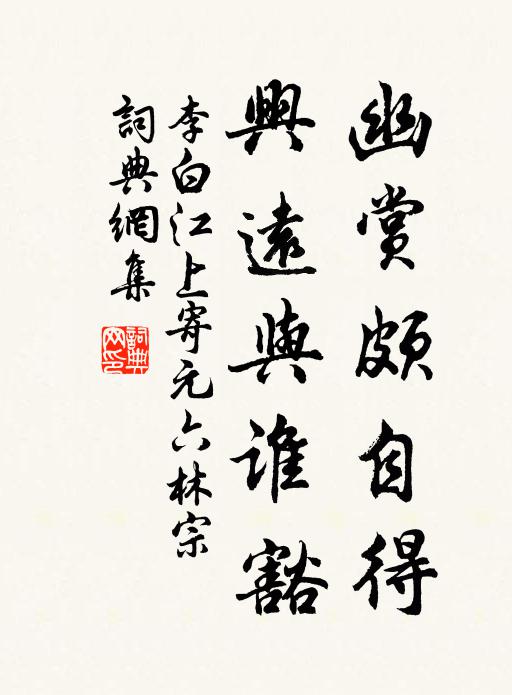 幽賞頗自得
興遠與誰豁
李白江上寄元六林宗
詞典網集
詞典網印